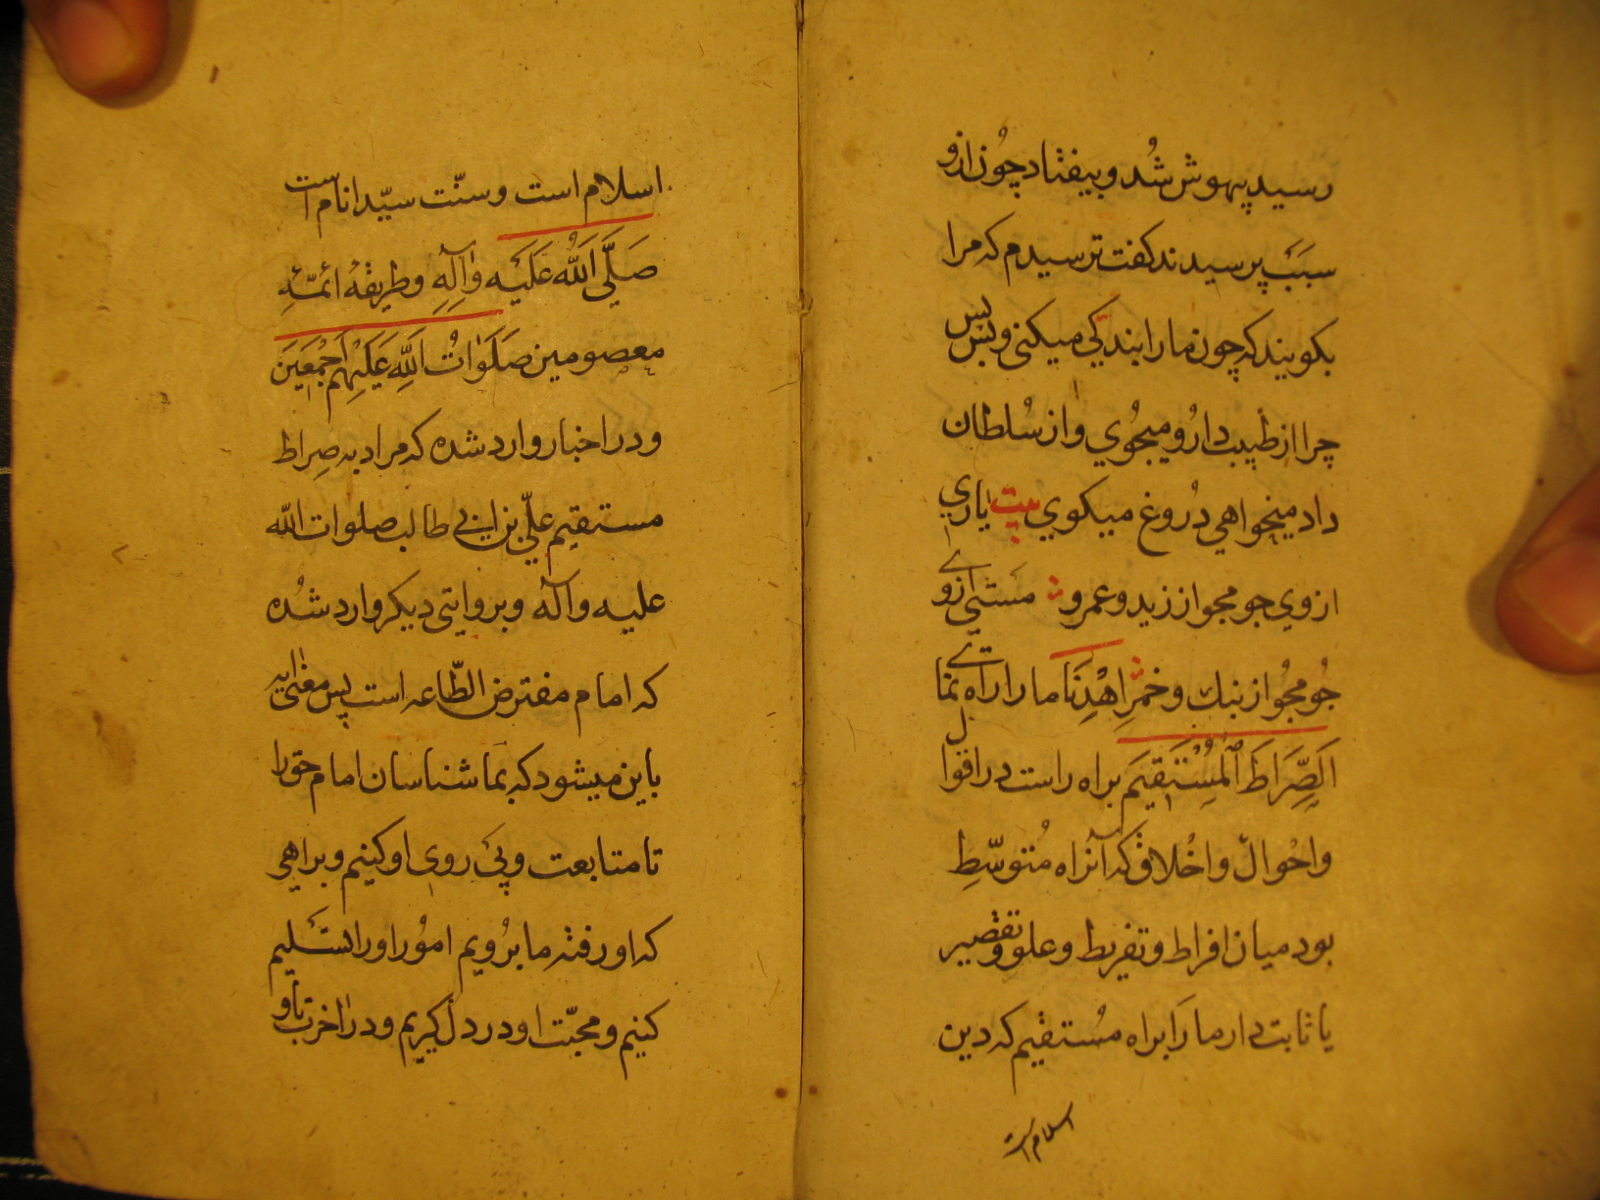 رسید بیهوش شد و بیفتاد چون ازو
سبب پرسیدند کفت ترسیدم که مرا
بکویند که چون ما را بندکی میکنی و بس پس
چرا از طبیب دارو میجوي و از سُلطان
داد میخواهي دروغ میکوي بیت یاري
از وي جو مجو از زید و عمرو مستي ازو
جُو مجُو از بنك و خمرِ اهْدِنَا ما را راه نماي
الصِّرَاطَ الْمُسْتَقِيمَ براه راست در اقوال
و احْوال و اخْلاق که آنراه مُتوسّطِ
بود میان افراط و تفریط و علو و تقصیر
یا ثابت دار ما را براه مستقیم که دین
اسلام است
اسلام است و سنّت سیّد انام است
صَلَّي اللّه عَلَيْه وَآلِهِ و طریقهٔ ائمّهٔ
معصومین صَلَوَاتُ اللَّهِ عَلَيْهِمْ اَجْمَعِينَ
و در اخبار وارد شده که مراد به صِراط
مستقیم عليّ بن ابي طالب صلوات اللّه
علیه و آله و بروایتی دیکر وارد شده
که امام مفترض الطّاعه است پس معنی آیه
باین میشود که بما شناسان امام حق را
تا متابعت و پَی روی او کنیم و براهی
که او رفته ما برُویم امُور او را تسلیم
کنیم و محبّت او در دل کیریم و در آخرت باو